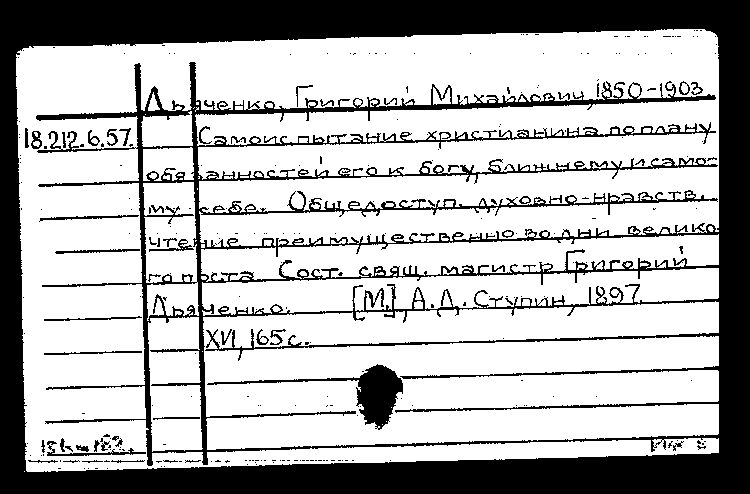 Дьяченко, Григорий Михайлович, 1850-1903.
18.212.6.57. Самоиспытание христианина по плану
обязанностей его к богу, ближнему и само-
му себе. Общедоступ. духовно-нравств.
чтение преимущественно во дни велико-
го поста. Сост. свящ. магистр Григорий
Дьяченко. [М.], А.Д. Ступин, 1897.
XVI, 165 с.